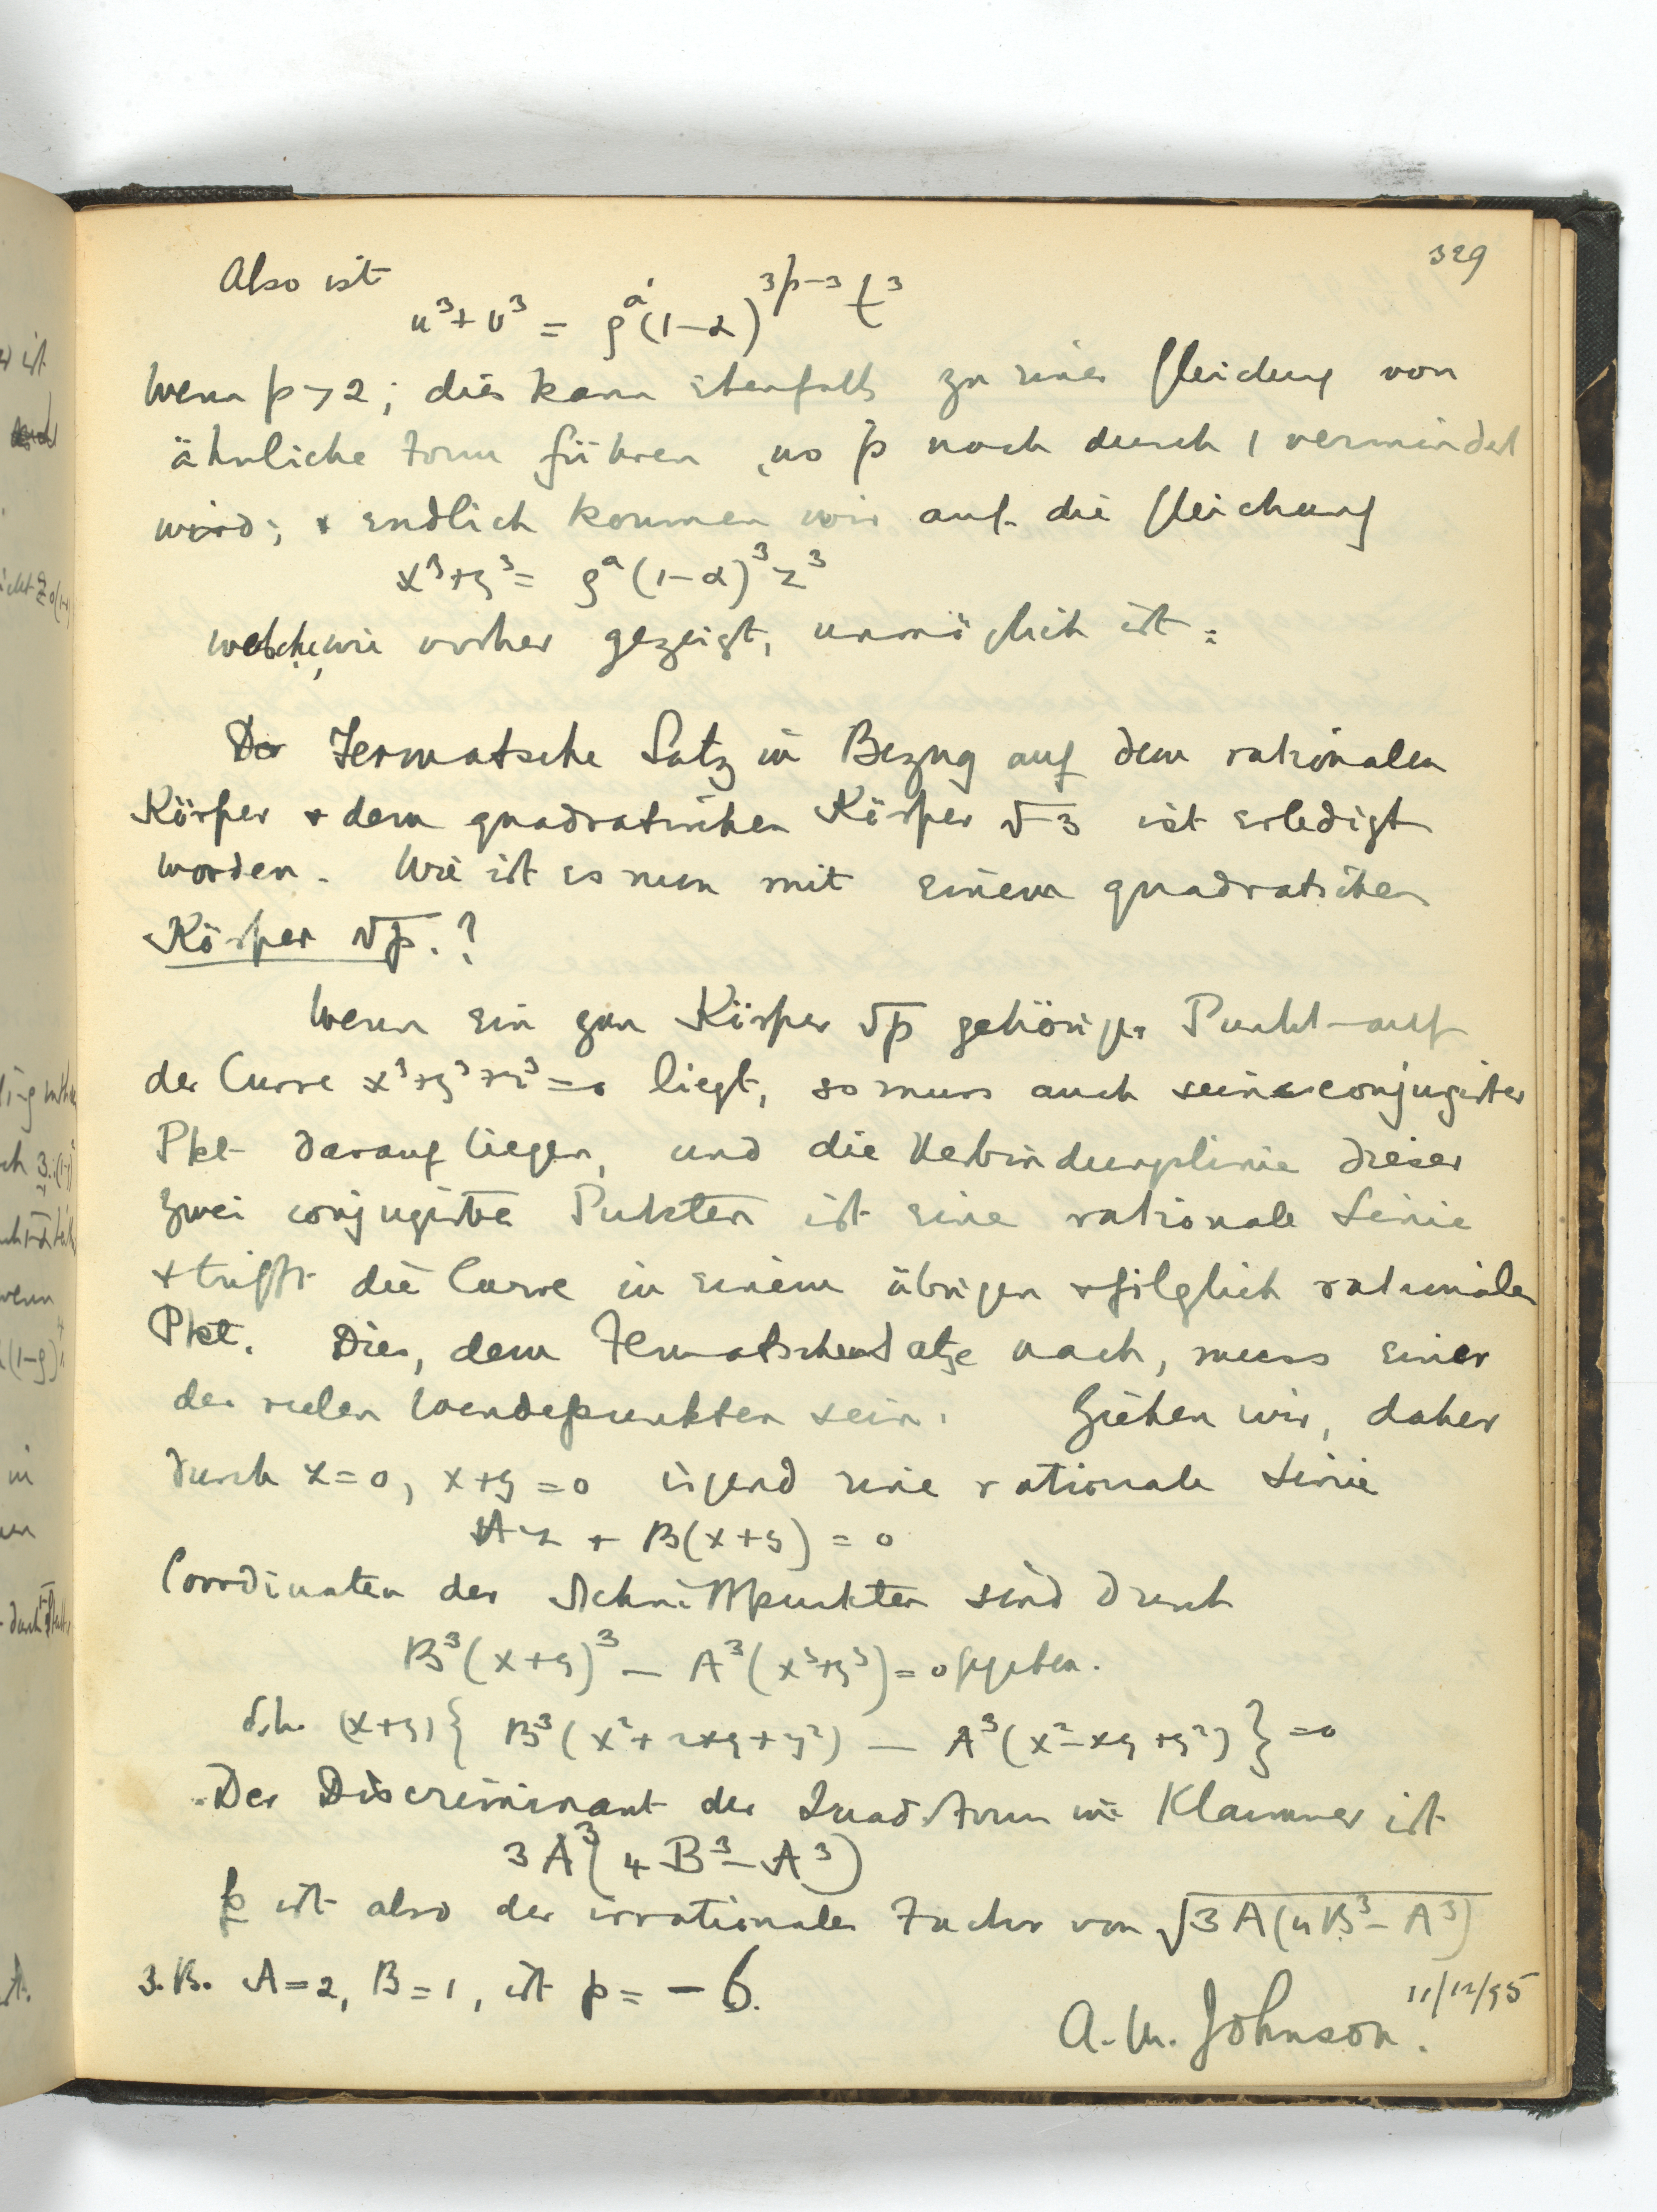 329
Also ist
u³ + v³ = ρ^a'(1-α)^{3p-3} t³
Wenn p > 2; dies kann ebenfalls zu einer Gleichung von
ähnliche Form führen, wo p noch durch 1 vermindert
wird; + endlich kommen wir auf die Gleichung
x³ + y³ = ρ^a (1-α)³ z³
welche, wie vorher gezeigt, unmöglich ist.
Der Fermatsche Satz in Bezug auf dem rationalen
Körper + dem quadratischen Körper √-3 ist erledigt
worden. Wie ist es nun mit einem quadratischen
Körper √p.?
Wenn ein zum Körper √p gehöriger Punkt auf
der Curve x³+y³+z³=0 liegt, so muss auch sein conjugirter
Pkt darauf liegen, und die Verbindungslinie dieser
zwei conjugirte Pukten ist eine rationale Linie
+ trifft die Curve in einem übrigen + folglich rationalen
Pkt. Dies, dem Fermatschen Satze nach, muss einer
der reelen Wendepunkten sein. Ziehen wir, daher
durch z=0, x+y=0 irgend eine rationale Linie
Az + B(x+y) = 0
Coordinaten der Schnittpunkten sind durch
B³(x+y)³ - A³(x³+y³) = 0 gegeben.
d.h. (x+y){ B³(x²+2xy+y²) - A³(x²-xy+y²)} = 0
Der Discriminant der Quad. Form in Klammer ist
3A³(4B³-A³)
p ist also der irrationaler Factor von √3A(4B³-A³)
z.B. A=2, B=1, ist p = -6.
A. M. Johnson. 11/12/95